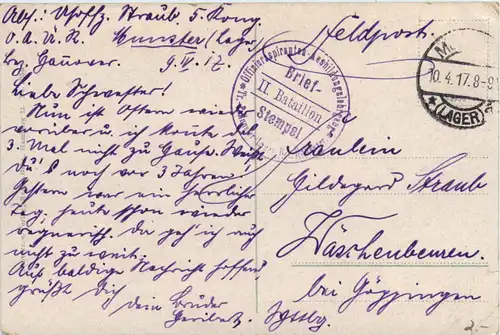 Abs: Utoffz. Straub, 5. Komp.
O.A.K. Munster (Lager)
Bez. Hannover. 9.IV.17.
Liebe Schwester!
Nun ist Ostern wieder
vorüber u. ich konnte das
3. Mal nicht zu Hause. Weißt
du's noch vor 3 Jahren?
Gestern war ein herrlicher
Tag, heute schon wieder
regnerisch. Da geh' ich auch
nicht zu weit.
Auf baldige Nachricht hoffend
grüßt Dich
dein Bruder
Heribert
Feldpost.
Offizieraspiranten Ausbildungs
Brief-
II. Bataillon
Stempel
10.4.17.8-9
(LAGER)
Fräulein
Hildegard Straub
Wäschenbeuren.
bei Göppingen
Wttbg.
2.-